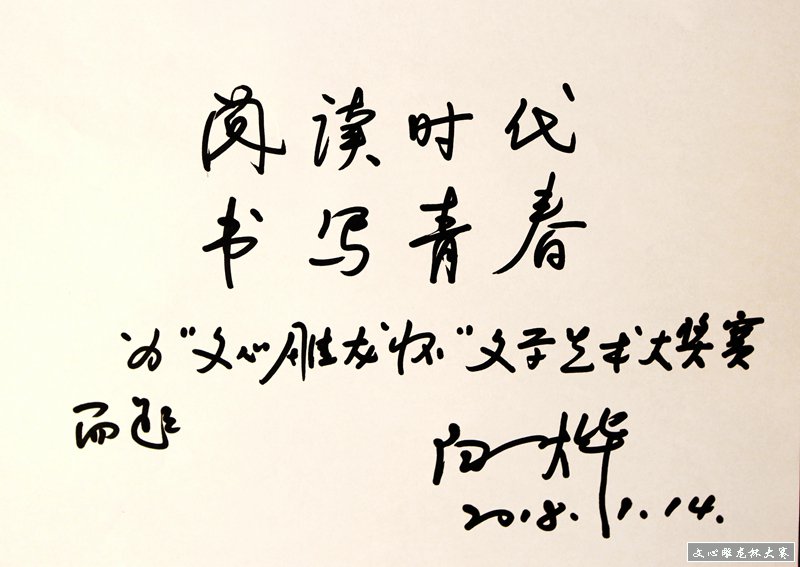 阅读时代
书写青春
为“文心雕龙杯”文学艺术大奖赛
而题
白桦
2018.1.14.
文心雕龙杯大赛